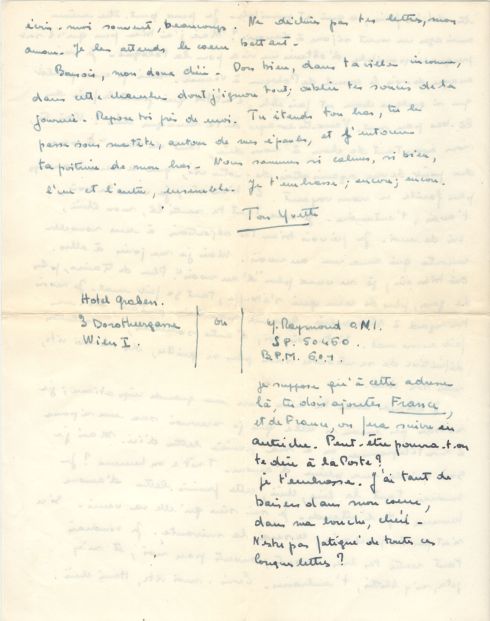 écris-moi souvent, beaucoup. Ne déchire pas tes lettres, mon
amour. Je les attends le coeur battant.
Bonsoir, mon doux chéri. Dors bien, dans ta ville inconnue,
dans cette chambre dont j'ignore tout; oublie tes soucis de la
journée. Repose toi près de moi. Tu étends ton bras, tu le
passes sous ma tête, autour de mes épaules, et j'entoure
ta poitrine de mon bras. Nous sommes si calmes, si bien,
l'un et l'autre, ensemble. Je t'embrasse; encore; encore.
Ton Yvette
Hotel Graben.
3 Dorotheergasse
Wien I.
ou
Y. Raymond O.N.I.
SP. 50450.
B.P.M. 601.
je suppose qu'à cette adresse
là, tu dois ajouter France,
et de France, on fera suivre en
autriche. Peut-être pourra-t-on
te dire à la Poste?
je t'embrasse. J'ai tant de
baisers dans mon coeur,
dans ma bouche, chéri.
N'es-tu pas fatigué de toutes ces
longues lettres?